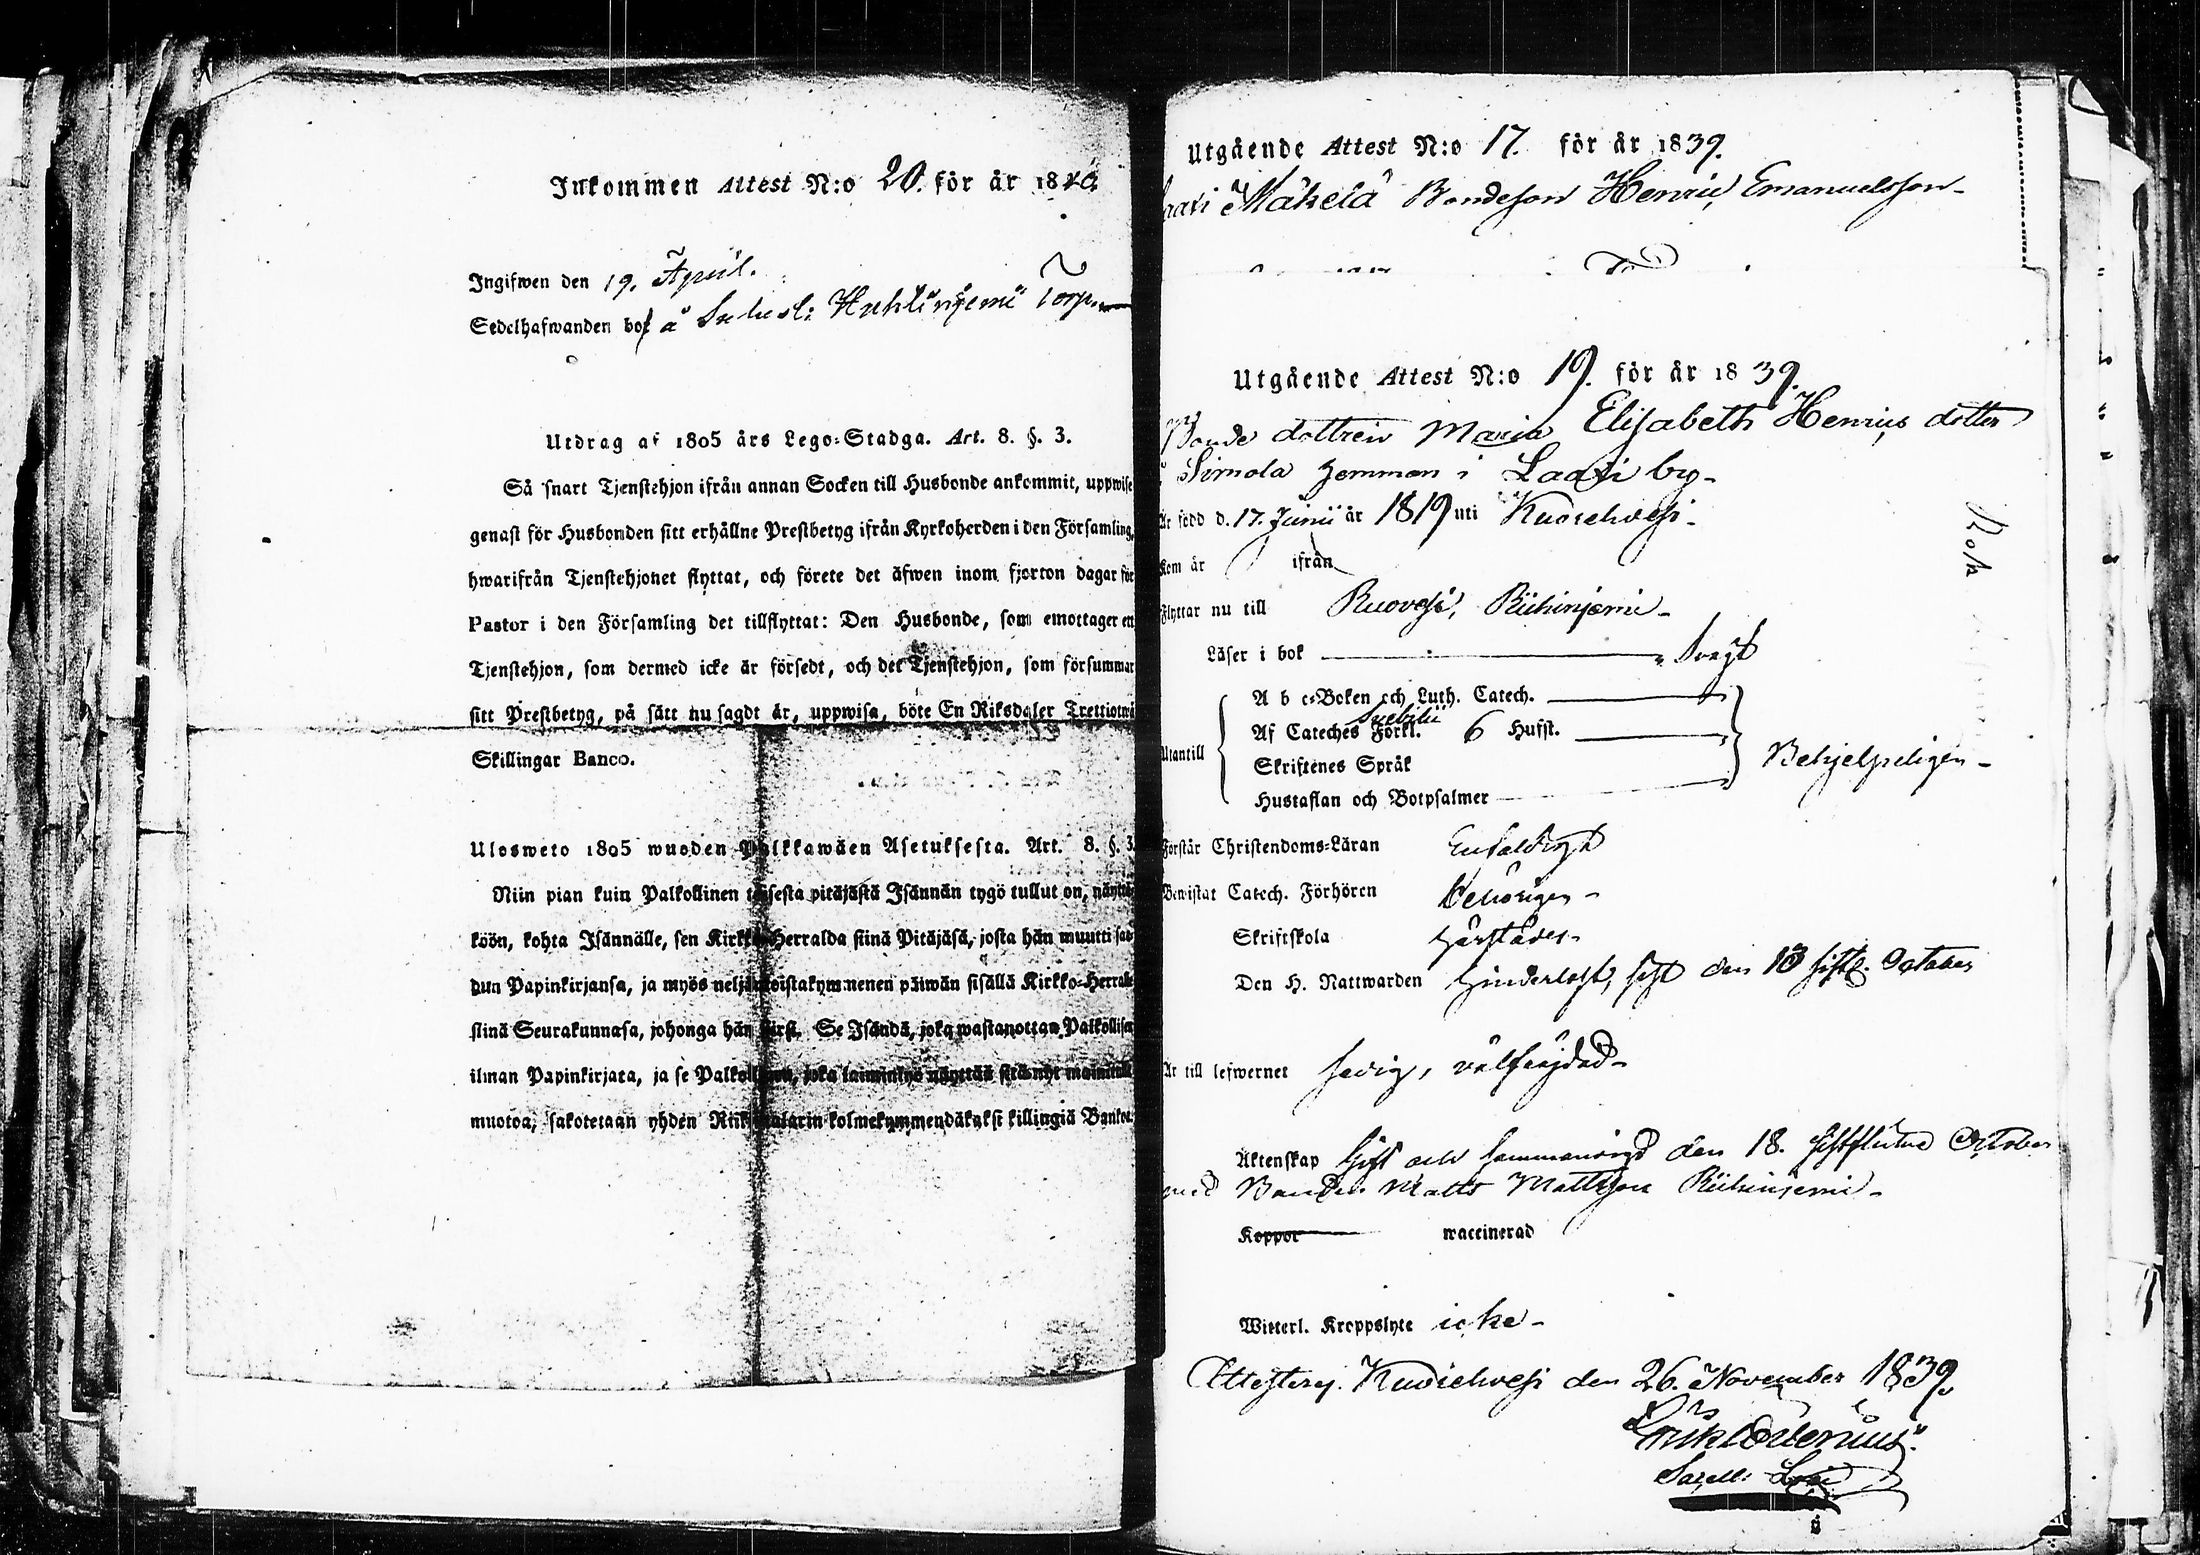 Inkommen Attest N:o 20. för år 1840.
Ingifwen den 19. April.
Sedelhafwanden bor å Torp
Utdrag af 1805 års Lego-Stadga. Art. 8. §. 3.
Så snart Tjenstehjon ifrån annan Socken till Husbonde ankommit, uppwise
genast för Husbonden sitt erhållne Prestbetyg ifrån Kyrkoherden i den Församling,
hwarifrån Tjenstehjonet flyttat, och förete det äfwen inom fjorton dagar för
Pastor i den Församling det tillflyttat: Den Husbonde, som emottager en
Tjenstehjon, som dermed icke är försedt, och det Tjenstehjon, som försummar
sitt Prestbetyg, på sätt nu sagdt är, uppwisa, böte En Riksdaler Trettiotwå
Skillingar Banco.
Ulosweto 1805 wuoden Palkkawäen Asetuksesta. Art. 8. §. 3.
Niin pian kuin Palkollinen toisesta pitäjästä Isännän tygö tullut on, näyttä-
köön, kohta Isännälle, sen Kirkko-Herralda siinä Pitäjäsä, josta hän muutti saa-
dun Papinkirjansa, ja myös neljäntoistakymmenen päiwän sisällä Kirkko-Herralle
siinä Seurakunnasa, johonga hän siirsi. Se Isändä, joka wastanottaa Palkollisen
ilman Papinkirjata, ja se Palkollinen, joka laiminlyö näyttää sitä nyt mainitulla
muotoa, sakotetaan yhden Riikintalarin kolmekymmendäkaksi killingiä Bankot.
Utgående Attest N:o 17. för år 1839.
Mäkelä Bondeson Henric Emanuelsson
Utgående Attest N:o 19. för år 1839.
Bonde dottren Maria Elisabeth Henrics dotter
Simola hemman i Laaxi by
Är född d. 17. Junii år 1819 uti Kuorehvesi
Kom år ifrån
Flyttar nu till Ruovesi, Riihinjemi
Läser i bok Svagt
A b c-Boken och Luth. Catech.
Svebilii
Af Cateches Förkl. 6 Hufst.
Utantill Behjelpeligen
Skriftenes Språk
Hustaflan och Botpsalmer
Förstår Christendoms-Läran Enfaldigt
Bewistat Catech. Förhören behörigen
Skriftskola härstädes
Den H. Nattwarden hinderlöst, sist den 13 sistl. October
Är till lefwernet sedig, välfräjdad
Äktenskap Gift och sammanvigd den 18. sistslutne October
med Bonden Matts Mattsson Riihinjemi
Koppor waccinerad
Witterl. Kroppslyte icke
Attesterg. Kuorehvesi den 26. November 1839.